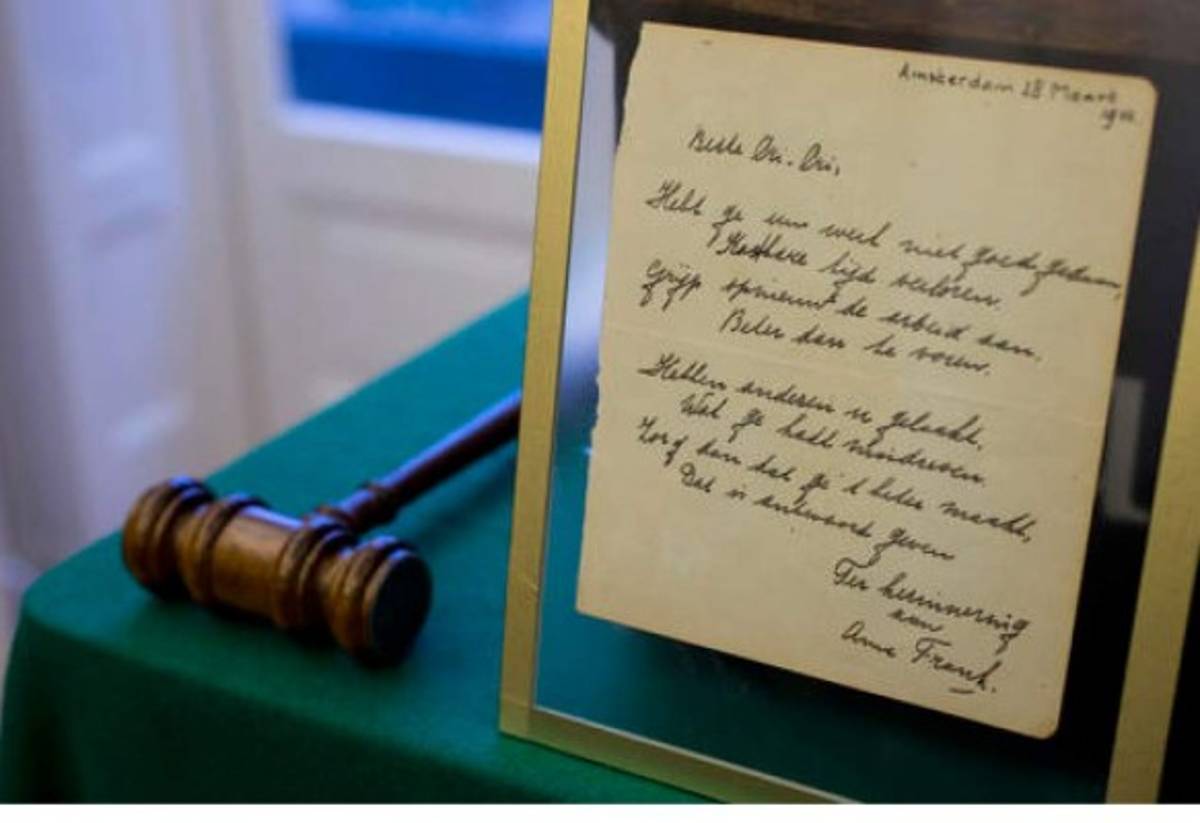 Amsterdam 28 Maart
1942
Beste Cri-Cri,
Hebt ge uw werk niet goed gedaan,
Kostbare tijd verloren.
Grijp opnieuwt de arbeid aan.
Beter dan te voren.
Hebben anderen u gelaakt,
Wat ge hadt misdreven.
Zorg dan dat ge 't beter maakt,
Dat is antwoord geven
Ter herinnering
aan
Anne Frank.